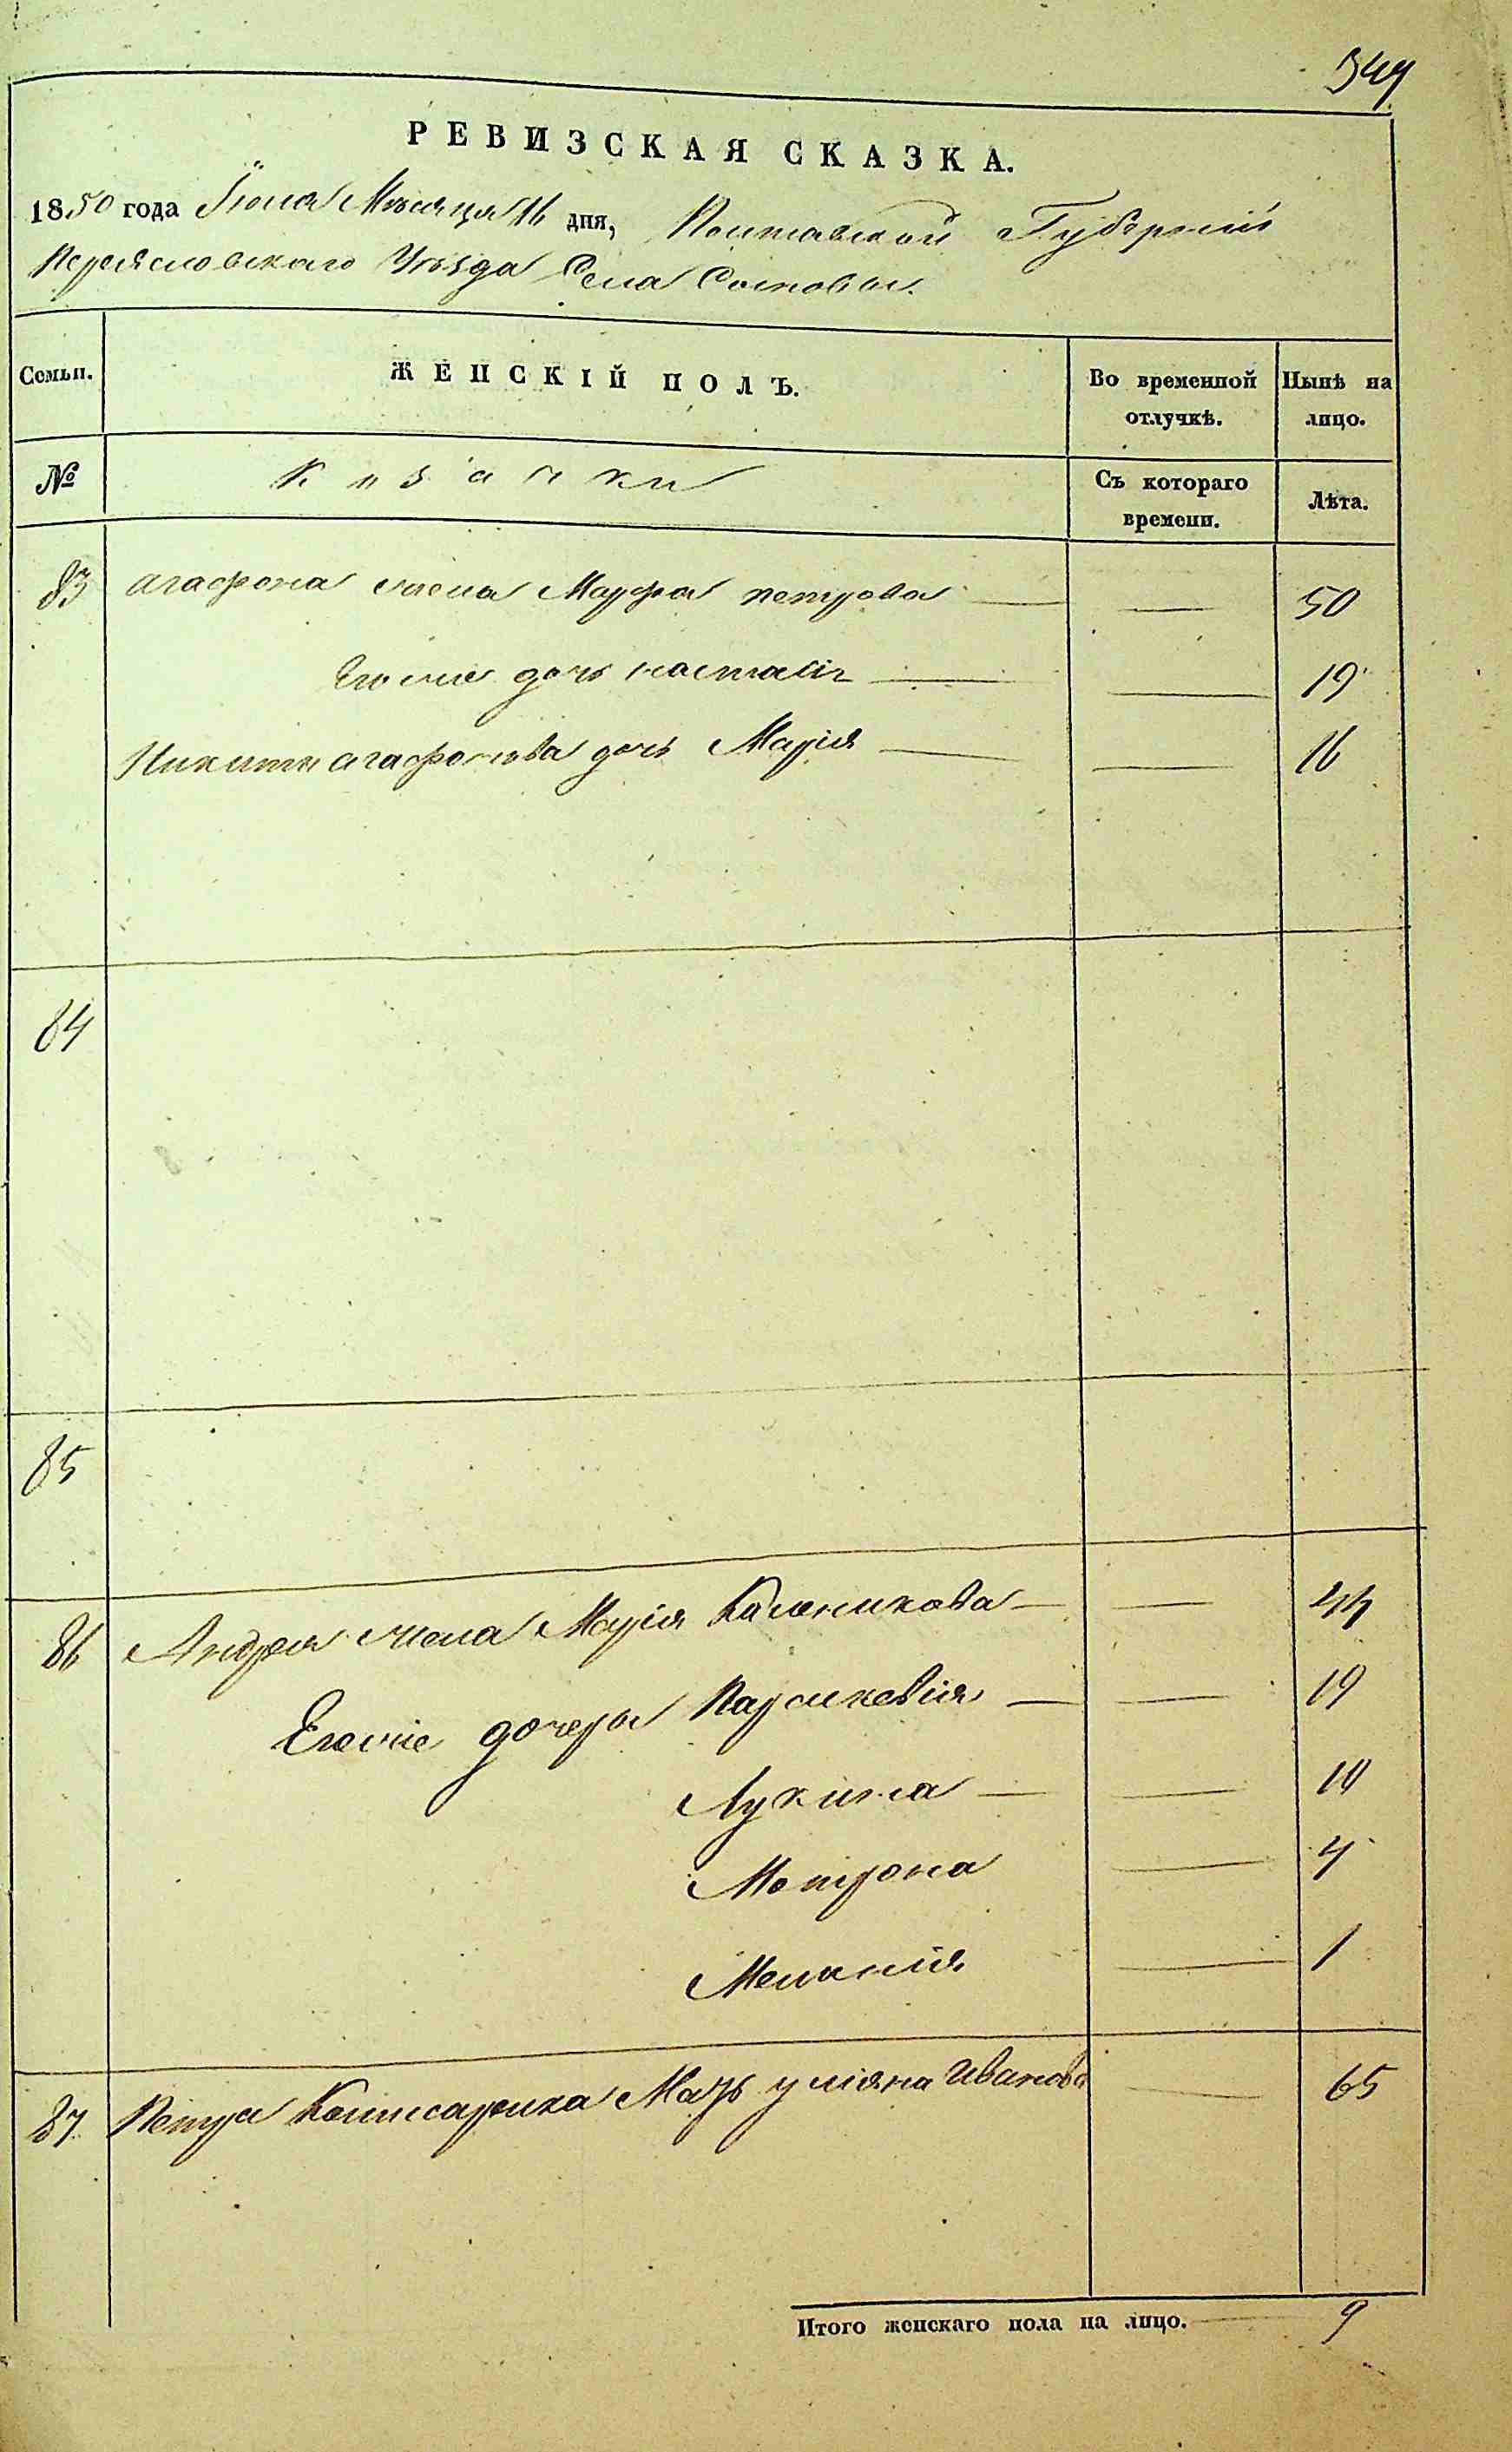 349
РЕВИЗСКАЯ СКАЗКА.
1850 года Іюня Мѣсяца 16 дня, Полтавской Губерніи
Переясловскаго Уѣзда Села Сосновы.
Семьи. ЖЕНСКІЙ ПОЛЪ. Во временной отлучкѣ. Нынѣ на лицо.
№ Козачки Съ котораго времени. Лѣта.
83 агафона жена Марфа петрова — — 50
Его же дочь настасія — — 19
Никиты агафонова дочь Марія — — 16
84
85
86 Андрея жена Марія Каленикова — — 44
Его же дочеры Параскевія — — 19
Лукина — — 10
Мотрона — 4
Меланія — 1
87 Петра Комисаренка Мать уліяна Иванова — 65
Итого женскаго пола на лицо. — 9